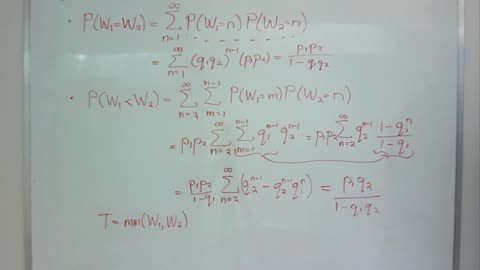 • P(W₁=W₂) = ∑_{n=1}^{∞} P(W₁=n) P(W₂=n)
= ∑_{n=1}^{∞} (q₁q₂)^{n-1} (p₁p₂) = p₁p₂ / (1-q₁q₂)
• P(W₁<W₂) = ∑_{n=2}^{∞} ∑_{m=1}^{n-1} P(W₁=m) P(W₂=n)
= p₁p₂ ∑_{n=2}^{∞} ∑_{m=1}^{n-1} q₁^{m-1} q₂^{n-1} = p₁p₂ ∑_{n=2}^{∞} q₂^{n-1} (1-q₁^{n}) / (1-q₁)
= p₁p₂ / (1-q₁) ∑_{n=2}^{∞} (q₂^{n-1} - q₂^{n-1} q₁^{n}) = p₁q₂ / (1-q₁q₂)
T = min(W₁,W₂)